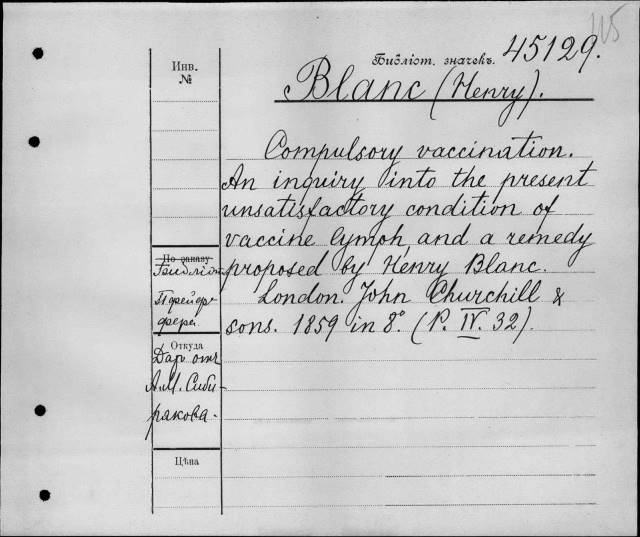 115
Библіот. значекъ. 45129.
Инв.
№
Blanc (Henry).
Compulsory vaccination.
An inquiry into the present
unsatisfactory condition of
vaccine lymph, and a remedy
proposed by Henry Blanc.
London. John Churchill &
sons. 1859 in 8°. (P. IV. 32).
По заказу
Библіот.
Пфейф-
фера.
Откуда
Даръ отъ
А.М. Сиби-
рякова.
Цѣна